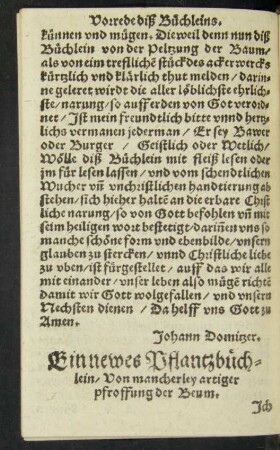 Vorrede diß Büchleins.
künnen vnd mügen. Dieweil denn nun diß
Büchlein von der Peltzung der Baum/
als von eim trefliche stückdes ackerwercks
kürtzlich vnd klärlich thut melden/ darin-
ne geleret wirdt die aller löblichste ehrlich-
ste/narung/so auff erden von Got verord-
net/Ist mein freundtlich bitte vnnd hertz-
lichs vermanen jederman/ Er sey Bawer
oder Burger / Geistlich oder Wetlich/
Wölle diß Büchlein mit fleiß lesen oder
jm für lesen lassen/ vnd vom schendtlichen
Wucher vñ vnchristlichen handtierung ab
stehen/sich hieher haltē an die erbare Christ
liche narung/so von Gott befohlen vñ mit
seim heiligen wort bestetigt/dariñen vns so
manche schöne form vnd ebenbilde/vnsern
glauben zu stercken/ vnnd Christliche liebe
zu vben/ist fürgestellet/ auff das wir alle
mit einander/ vnser leben also müge richtē
damit wir Gott wolgefallen/ vnd vnserm
Nechsten dienen / Da helff vns Gott zu
Amen.
Johann Domitzer.
Ein newes Pflantzbüch-
lein/ Von mancherley artiger
pfroffung der Beum.
Ich